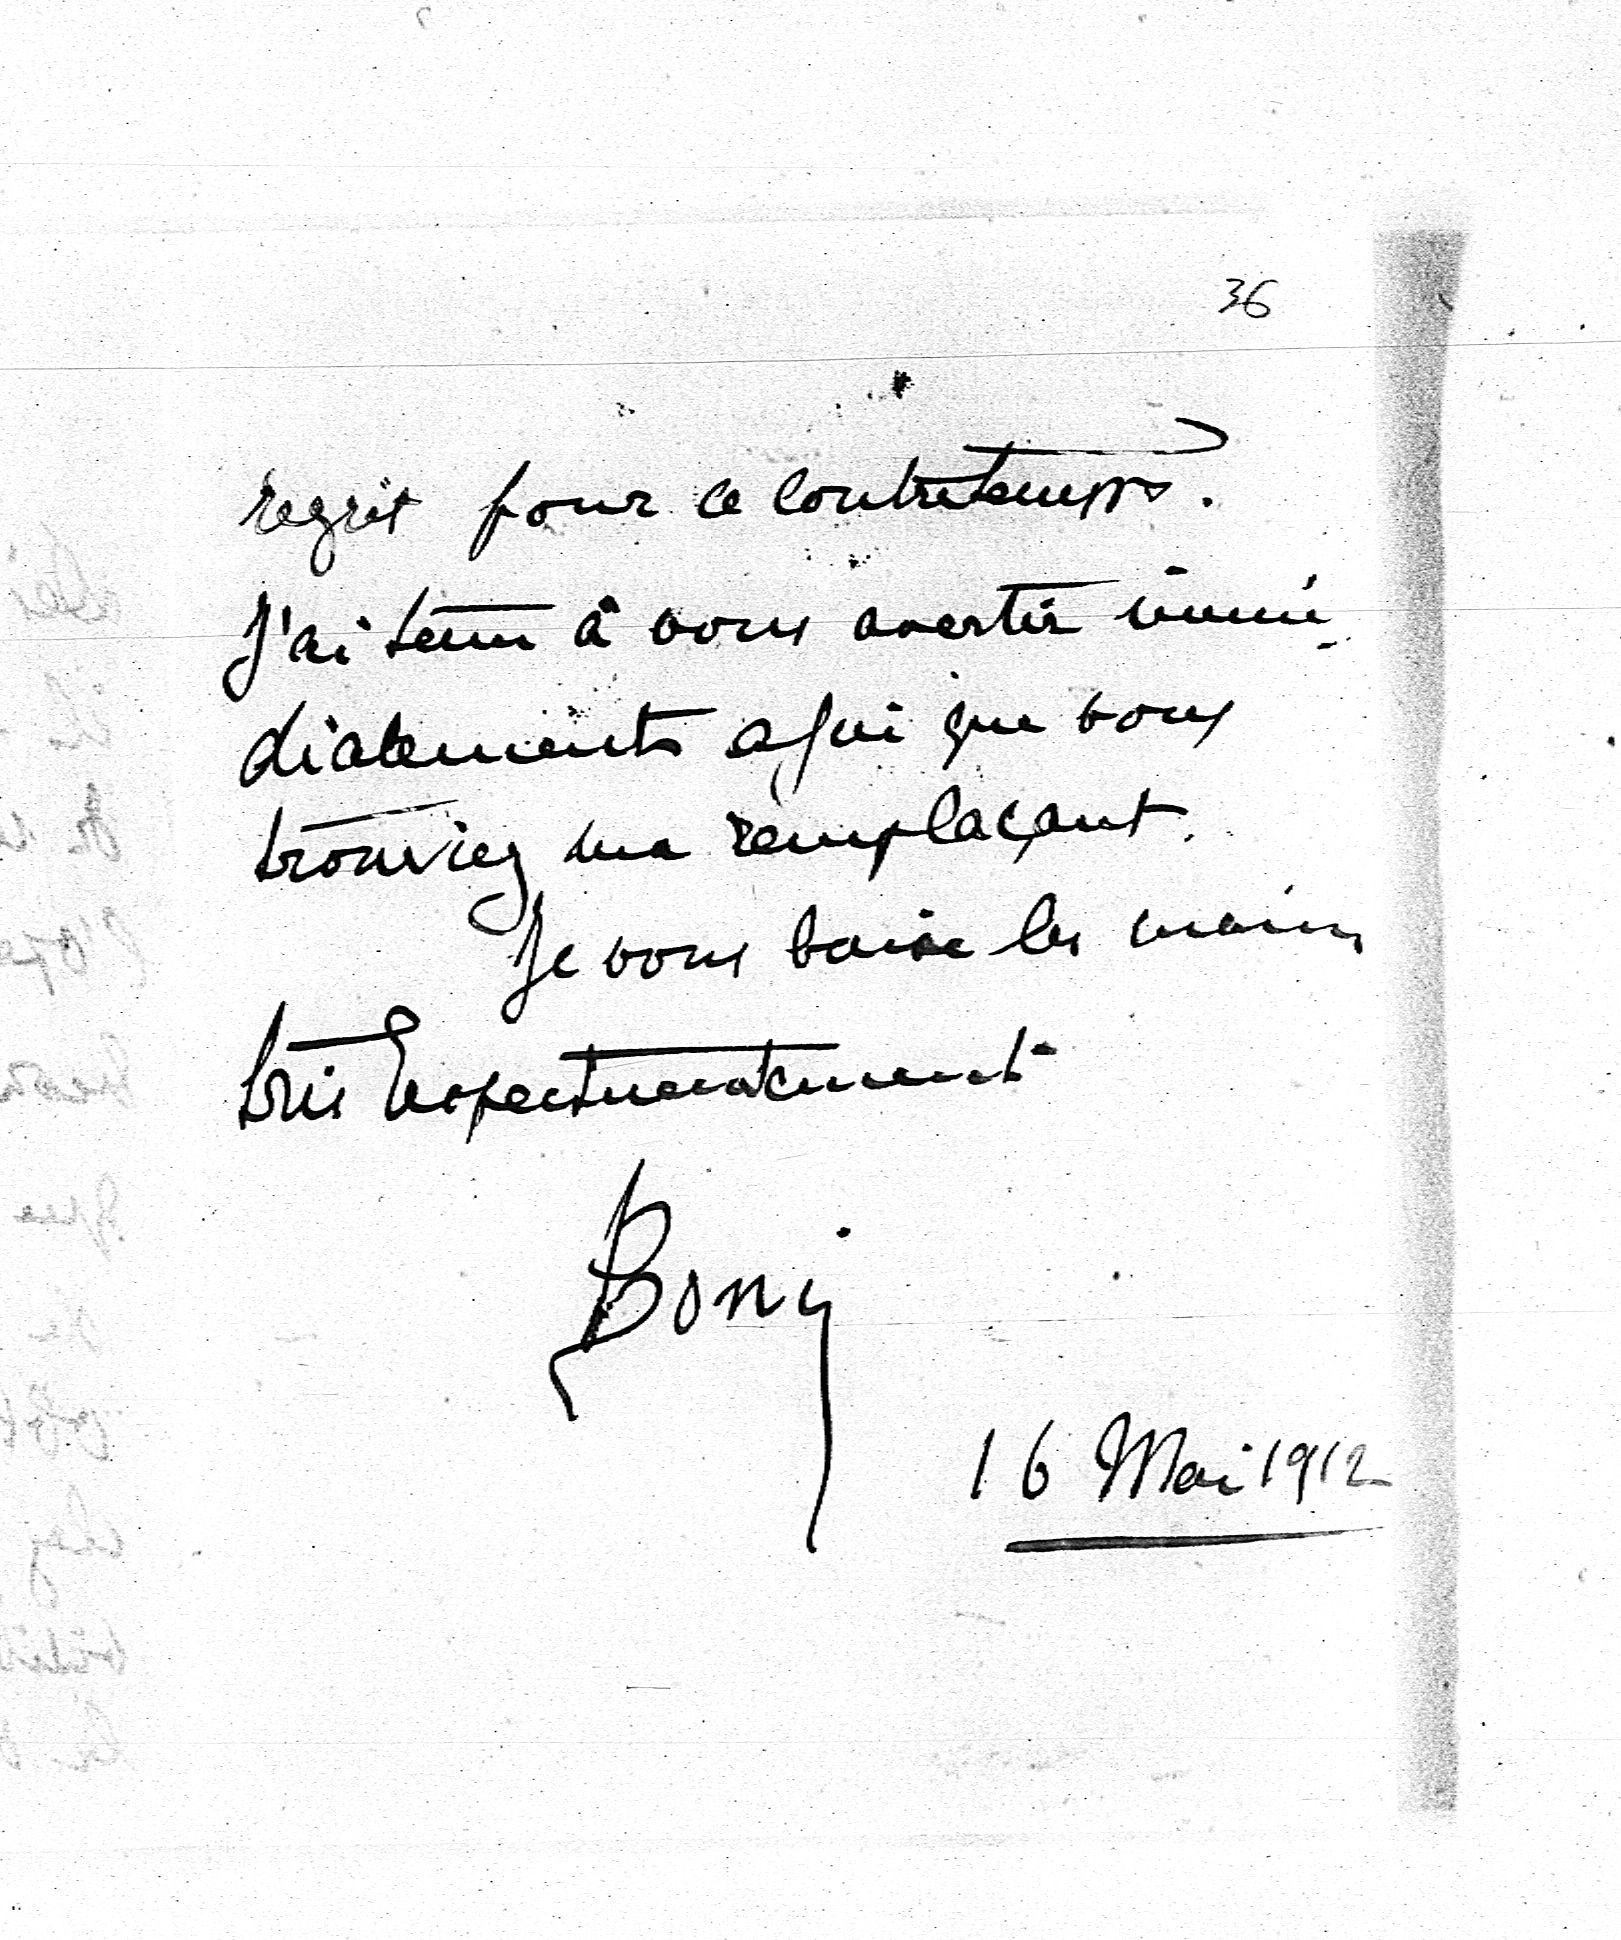 36
regret pour ce contretemps.
J'ai tenu à vous avertir immé-
diatement afin que vous
trouviez un remplaçant.
Je vous baise les mains
très respectueusement
Boni
16 Mai 1912